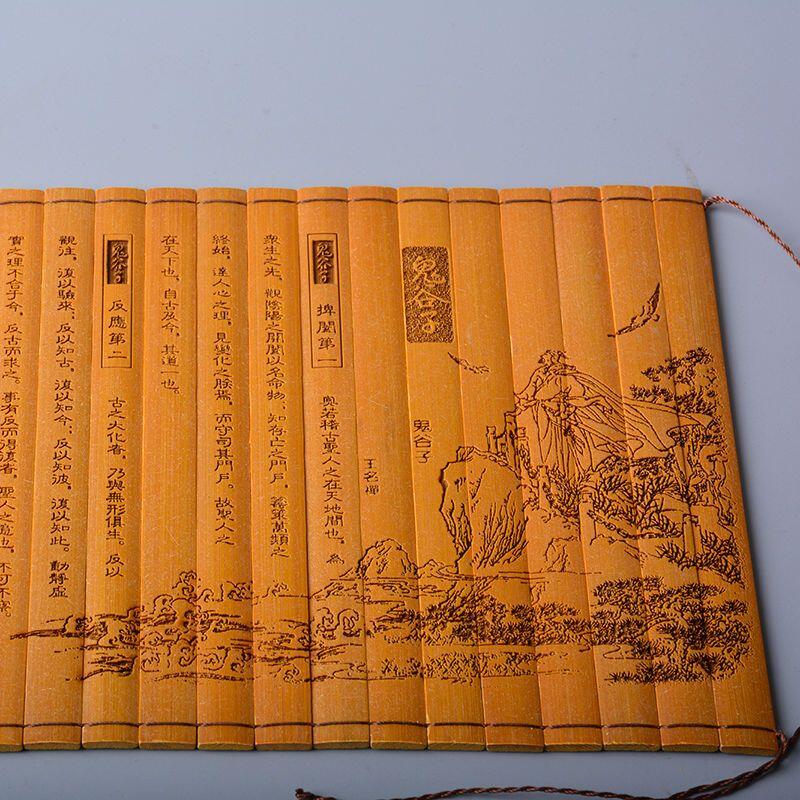 鬼谷子
鬼谷子
王名禪
鬼谷子
捭闔第一
奧若稽古聖人之在天地間也，為
眾生之先，觀陰陽之開闔以名命物；知存亡之門戶，籌策萬類之
終始，達人心之理，見變化之朕焉，而守司其門戶。故聖人之
在天下也，自古及今，其道一也。
鬼谷子
反應第二
古之大化者，乃與無形俱生。反以
觀往，復以驗來；反以知古，復以知今；反以知彼，復以知此。動靜虛
實之理不合于今，反古而求之。事有反而得復者，聖人之意也，不可不察。